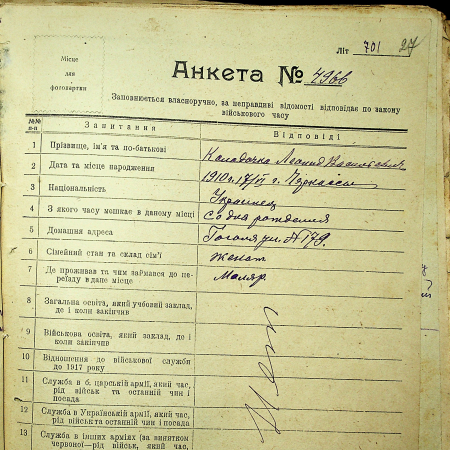 Літ 701 27
Місце
для
фотокартки
Анкета № 4966
Заповнюється власноручно, за неправдиві відомості відповідає по закону
військового часу
№№ п-п Запитання Відповіді
1 Прізвище, ім'я та по-батькові Леонид Васильевич
2 Дата та місце народження 1910 г. 17/VI г. Черкассы
3 Національність Украинец
4 З якого часу мешкає в даному місці Со дня рождения
5 Домашня адреса Гоголя ул. № 179.
6 Сімейний стан та склад сім'ї женат
7 Де проживав та чим займався до пе-
реїзду в дане місце Маляр.
8 Загальна освіта, який учбовий заклад,
де і коли закінчив
9 Військова освіта, який заклад, де і
коли закінчив
10 Відношення до військової служби
до 1917 року
11 Служба в б. царській армії, який час,
рід військ та останній чин і
посада
12 Служба в Українській армії, який час,
рід військ та останній чин і посада
13 Служба в інших арміях (за винятком
червоної—рід військ, який час,